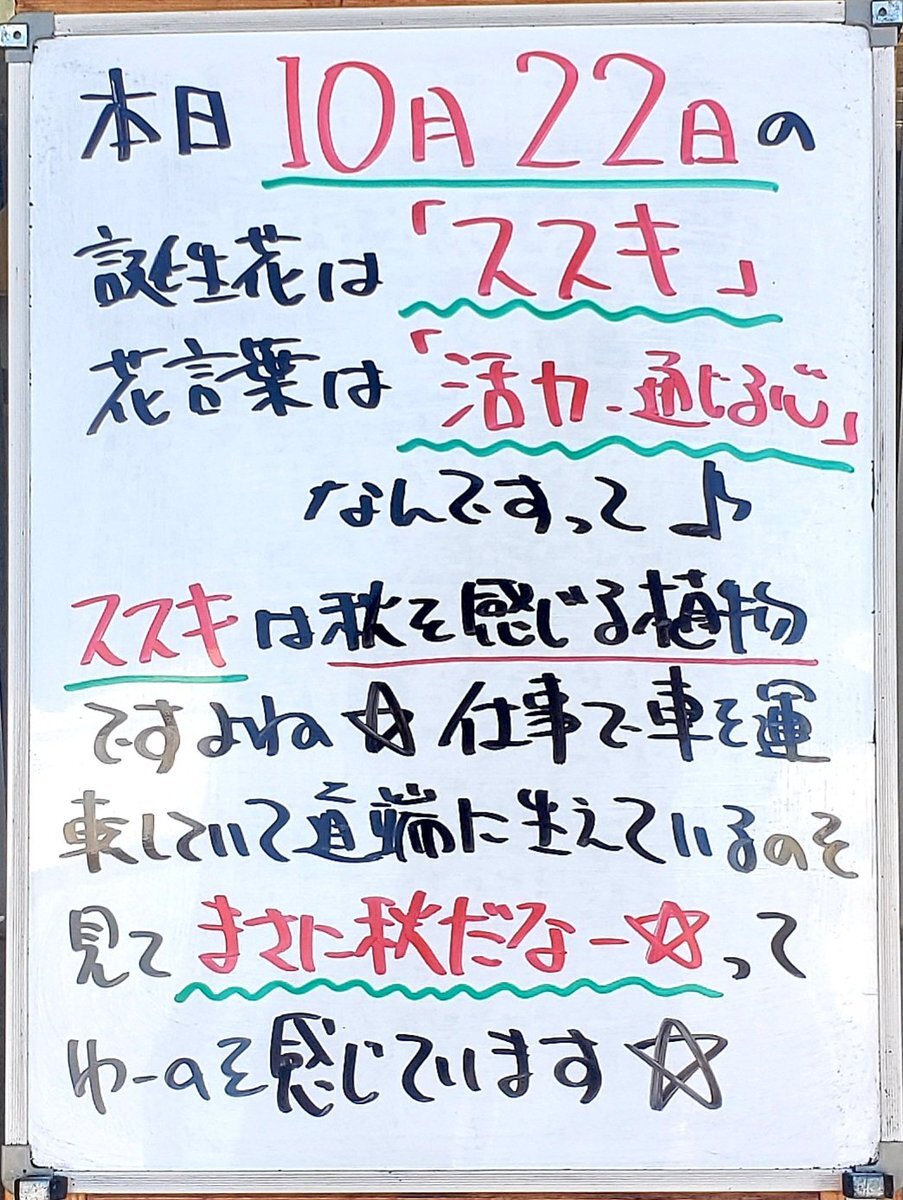 本日10月22日の
誕生花は「ススキ」
花言葉は「活力・通じる心」
なんですって♪
ススキは秋を感じる植物
ですよね☆仕事で車を運
転していて道端に生えているのを
見てまさに秋だなー☆って
ゆーのを感じています☆